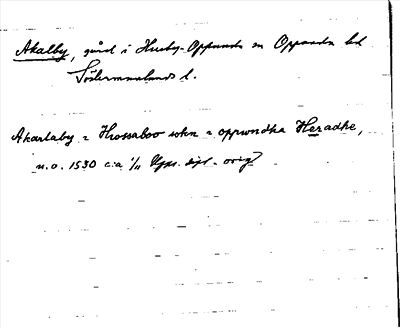 Akalby, gård i Husby-Oppunda sn Oppunda hd
Södermanlands l.
Akarlaby i Hossaboo sokn i oppwndha Heradhe,
u.o. 1530 c:a 1/11 Ups. dipl. orig